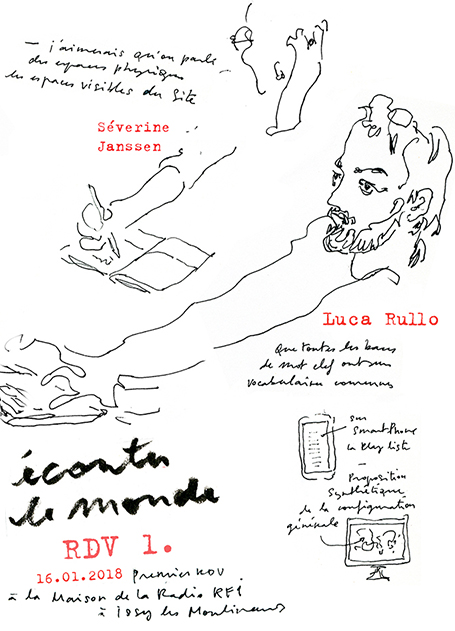 — j'aimerais qu'on parle
des espaces physiques
les espaces visibles du site
Séverine
Janssen
Luca Rullo
que toutes les bases
de mot clef ont un
vocabulaire commun
sur
smartPhone
la Play liste
—
Proposition
synthétique
de la configuration
générale
écouter
le monde
RDV 1.
16.01.2018 premier RDV
à la Maison de la Radio RFI
à issy les Moulineaux